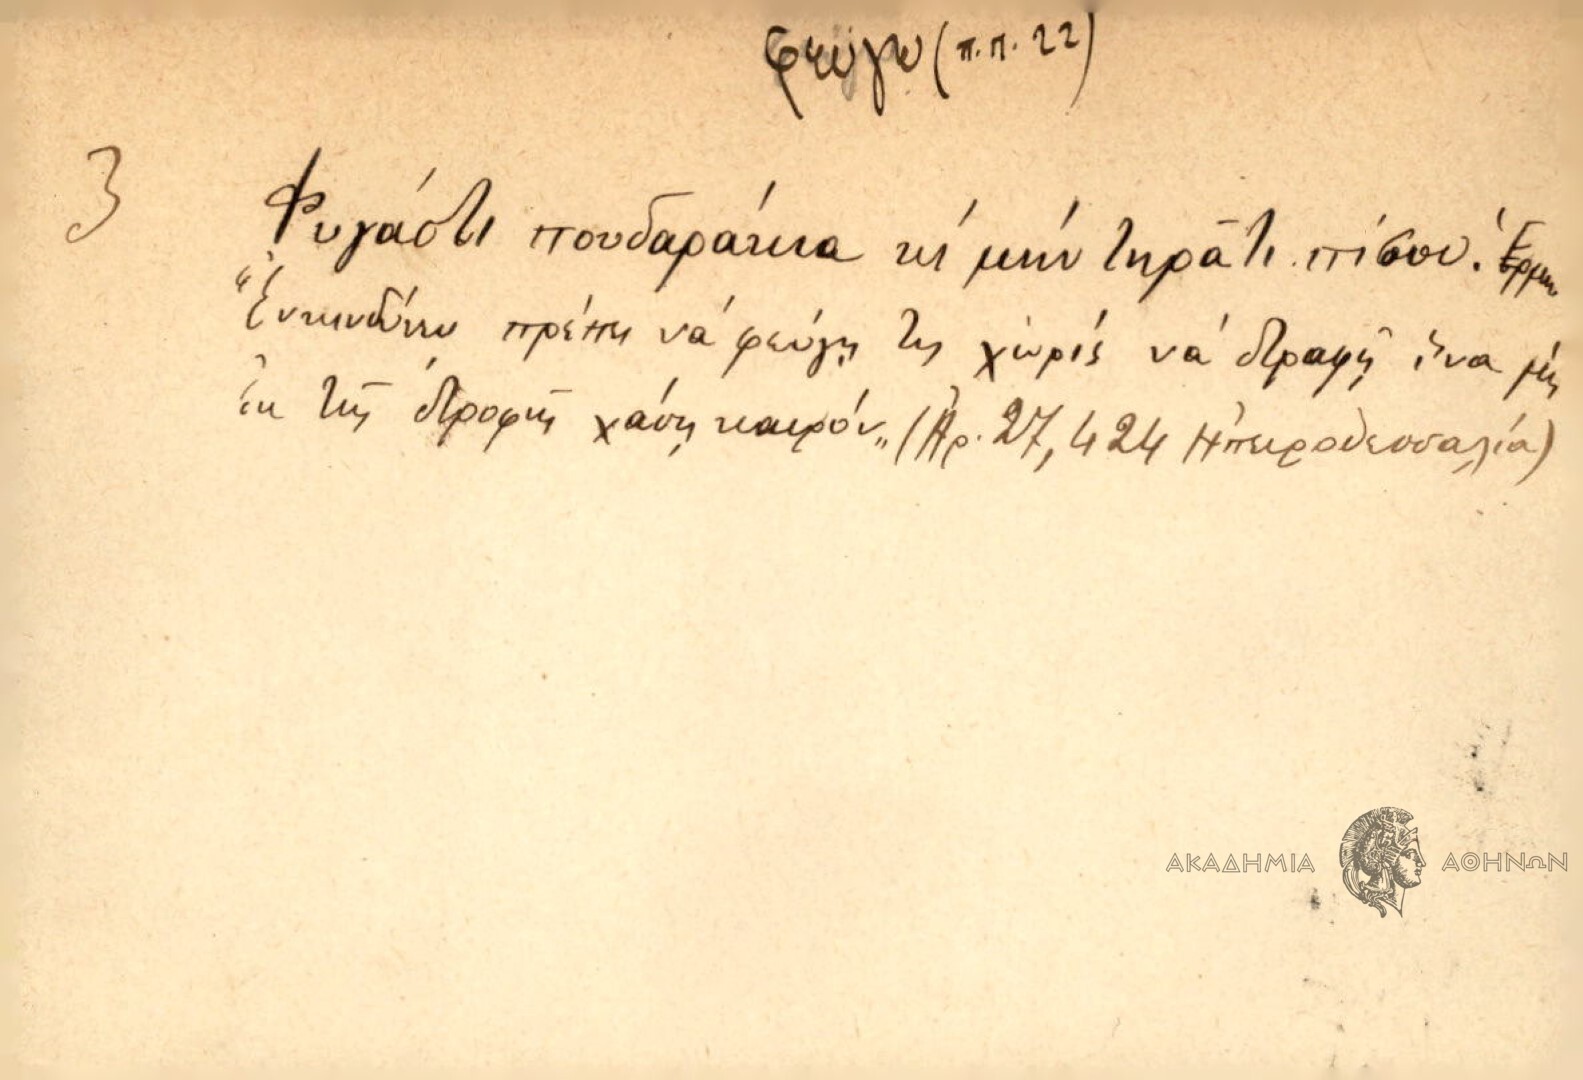 φεύγω (π.π. 22)
3
Φυγάστι πουδαράκια κι μην τηράτι πίσου. Ἑρμην.
"Ἐν κινδύνῳ πρέπει νά φεύγῃ τις χωρίς νά στραφῇ ἵνα μή
ἐκ τῆς στροφῆς χάσῃ καιρόν" (Ἀρ. 27, 424 Ἠπειροθεσσαλία)
ΑΚΑΔΗΜΙΑ ΑΘΗΝΩΝ